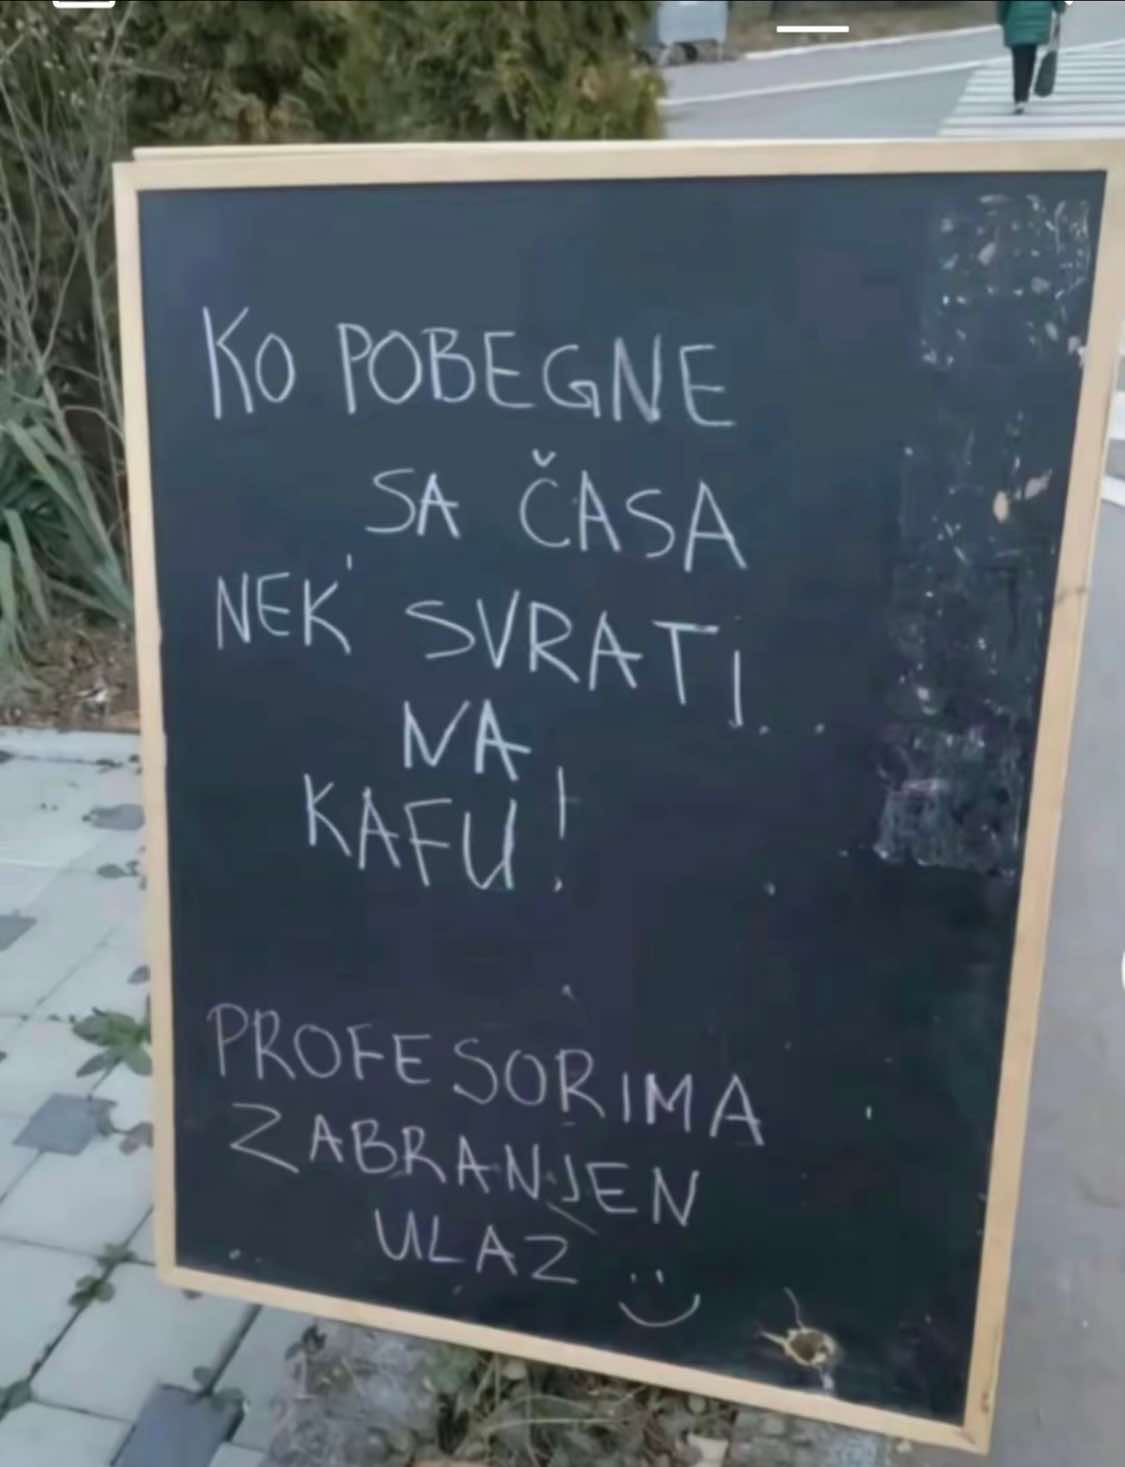 KO POBEGNE
SA ČASA
NEK' SVRATI..
NA
KAFU!
PROFESORIMA
ZABRANJEN
ULAZ :)